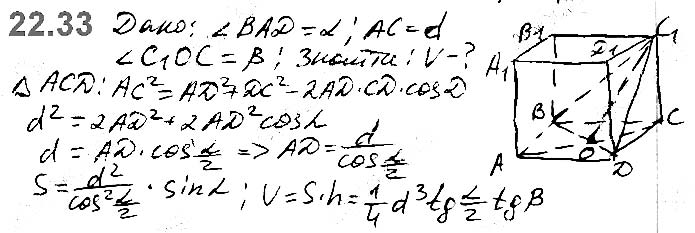 22.33 Дано: ∠BAD = α; AC = d
∠C₁OC = β; Знайти: V - ?
Δ ACD: AC² = AD² + DC² - 2AD·CD·cosD
d² = 2AD² + 2AD² cosα
d = AD·cos α/2 => AD = d / cos α/2
S = d² / cos² α/2 · sinα; V = S·h = 1/4 d³ tg α/2 tgβ
B₁ C₁
A₁ D₁
B C
O
A D